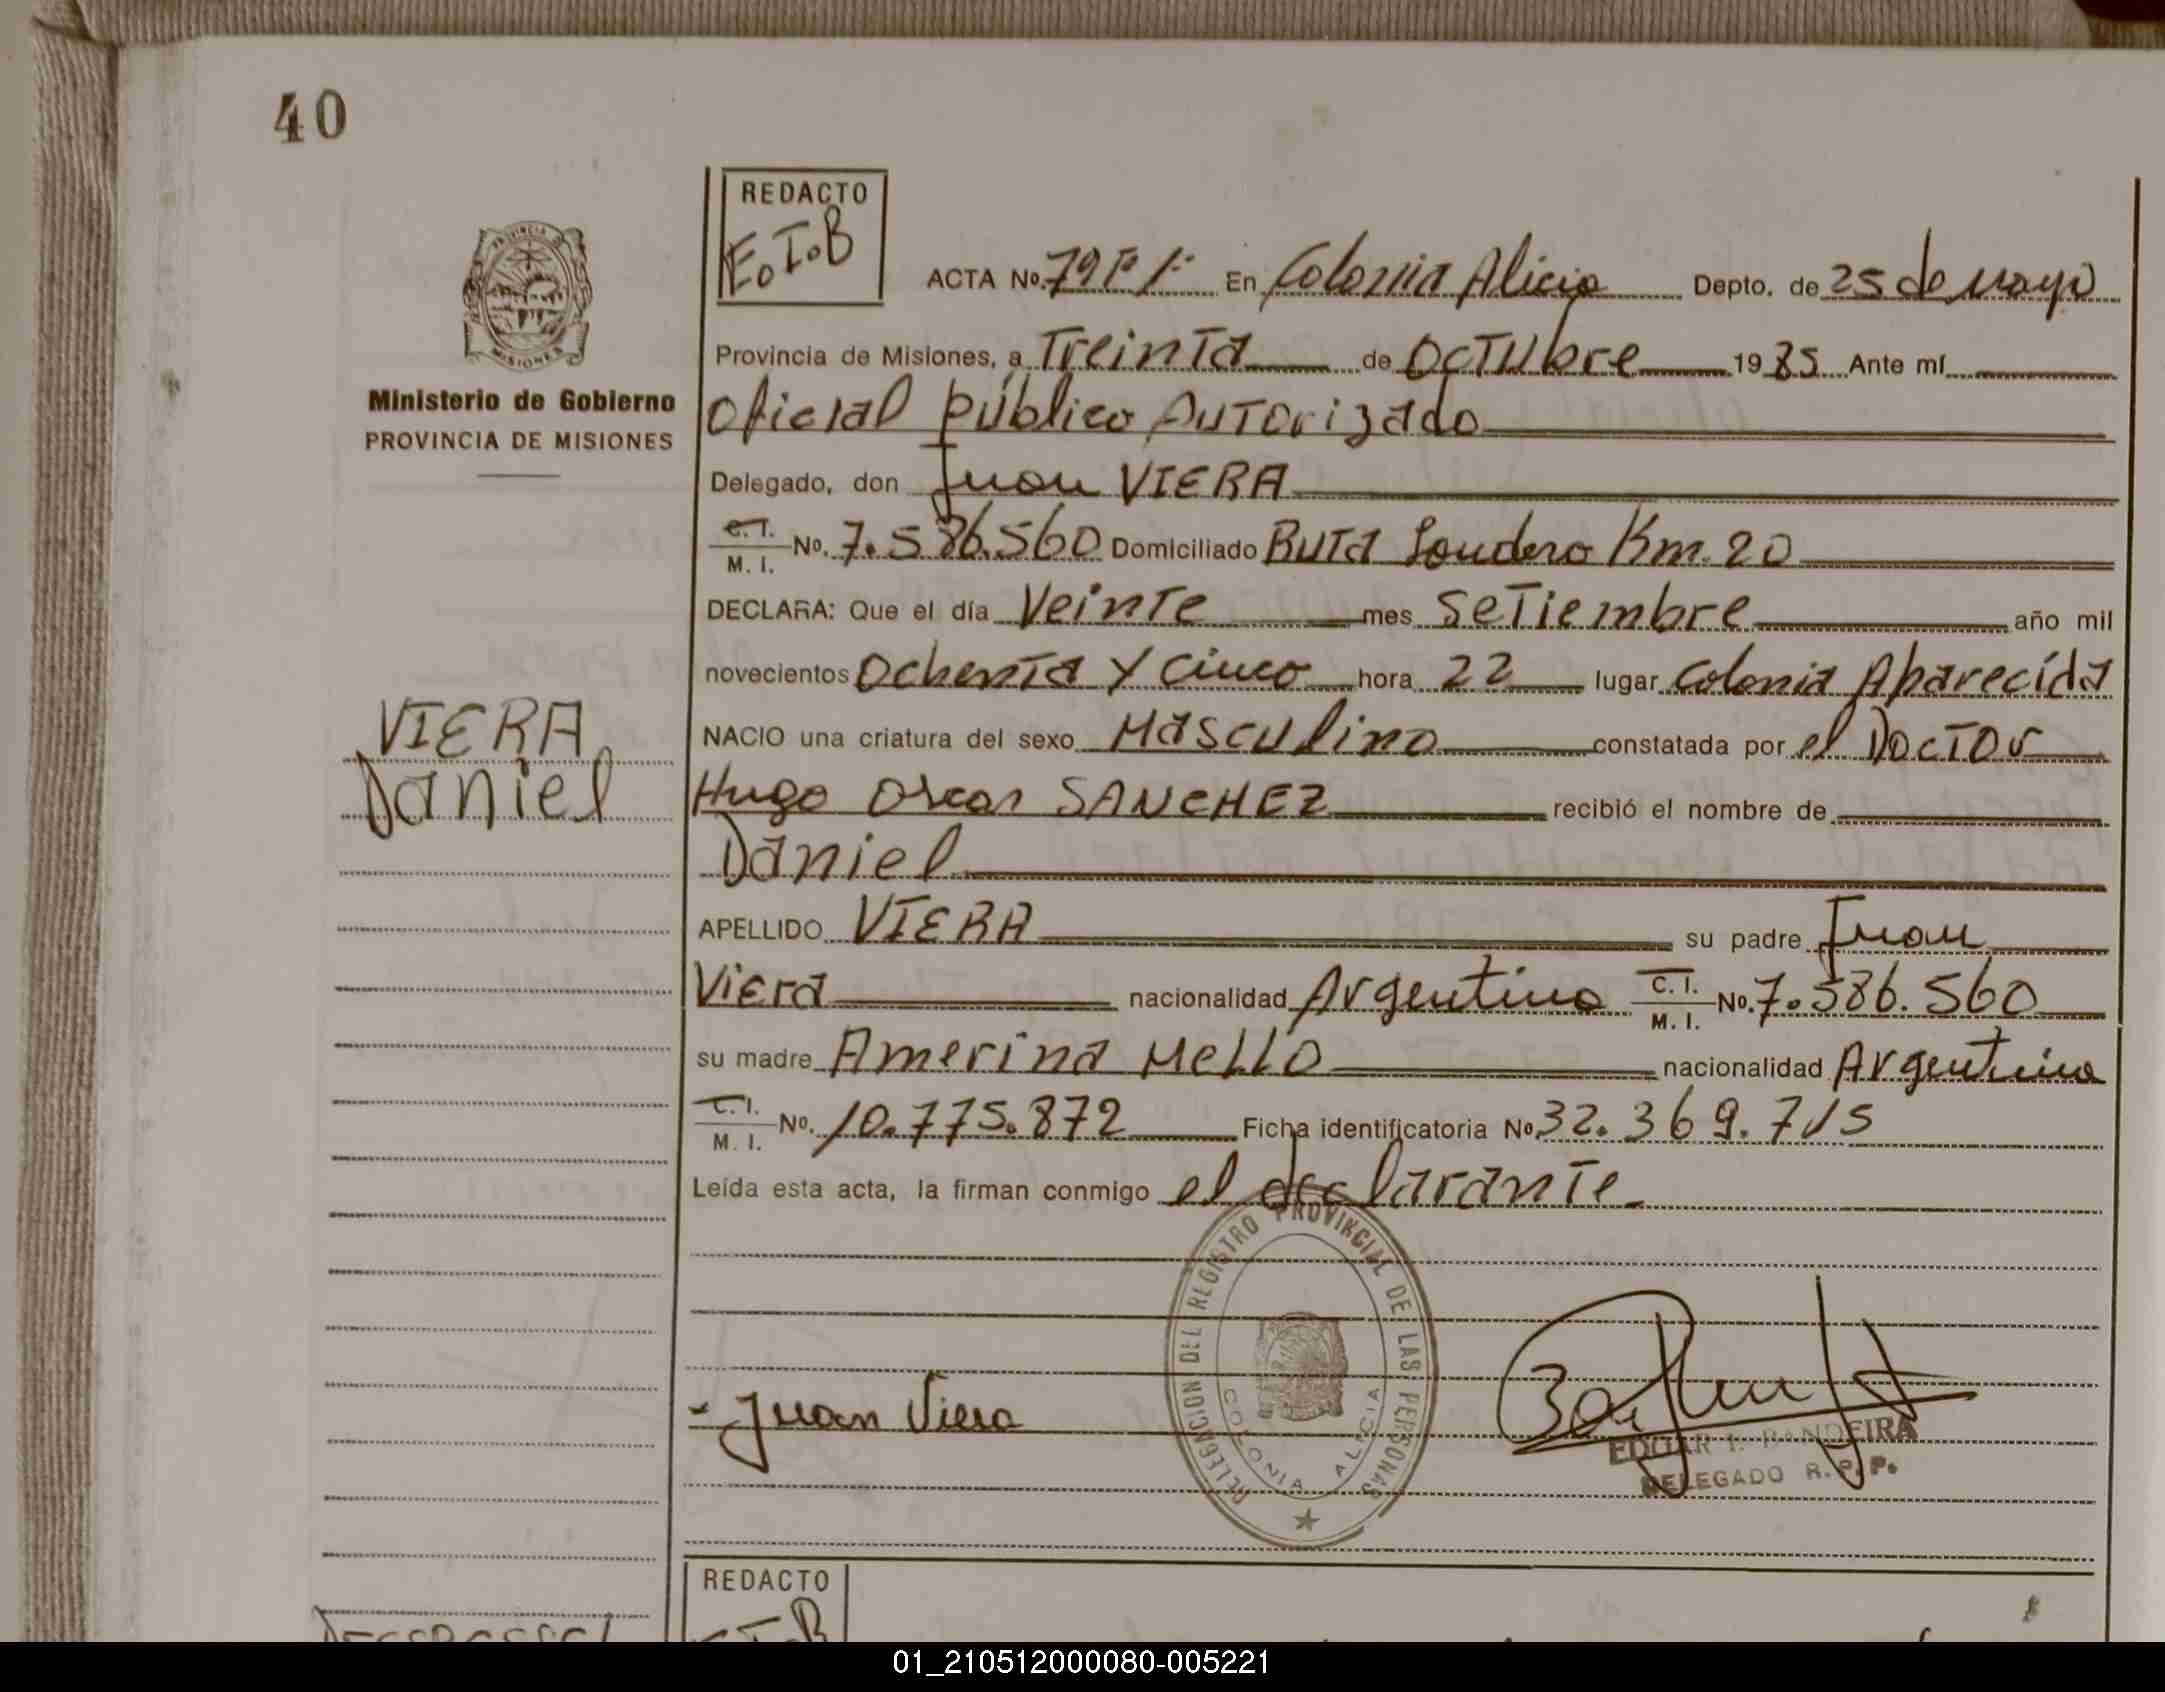 40
REDACTO
E.I.B
PROVINCIA D
MISIONES
Ministerio de Gobierno
PROVINCIA DE MISIONES
VIERA
Daniel
ACTA Nº. 79 Tº 1º En Colonia Alicia Depto. de 25 de Mayo
Provincia de Misiones, a Treinta de Octubre 1985 Ante mí
Oficial Público Autorizado
Delegado, don Juan VIERA
C. I. / M. I. Nº. 7.586.560 Domiciliado Ruta Km. 20
DECLARA: Que el día Veinte mes Setiembre año mil
novecientos Ochenta y Cinco hora 22 lugar Colonia Aparecída
NACIO una criatura del sexo Masculino constatada por el Doctor
Hugo Oscar SANCHEZ recibió el nombre de
Daniel
APELLIDO VIERA su padre Juan
Viera nacionalidad Argentino C. I. / M. I. Nº. 7.586.560
su madre Amerina Mello nacionalidad Argentina
C. I. / M. I. Nº. 10.775.872 Ficha identificatoria Nº 32.369.715
Leída esta acta, la firman conmigo el declarante
DEL REGISTRO PROVINCIAL DE LAS PERSONAS
COLONIA ALICIA
- Juan Viera
EDGAR I. BANDEIRA
DELEGADO R. P. P.
REDACTO
E.I.B
01_210512000080-005221